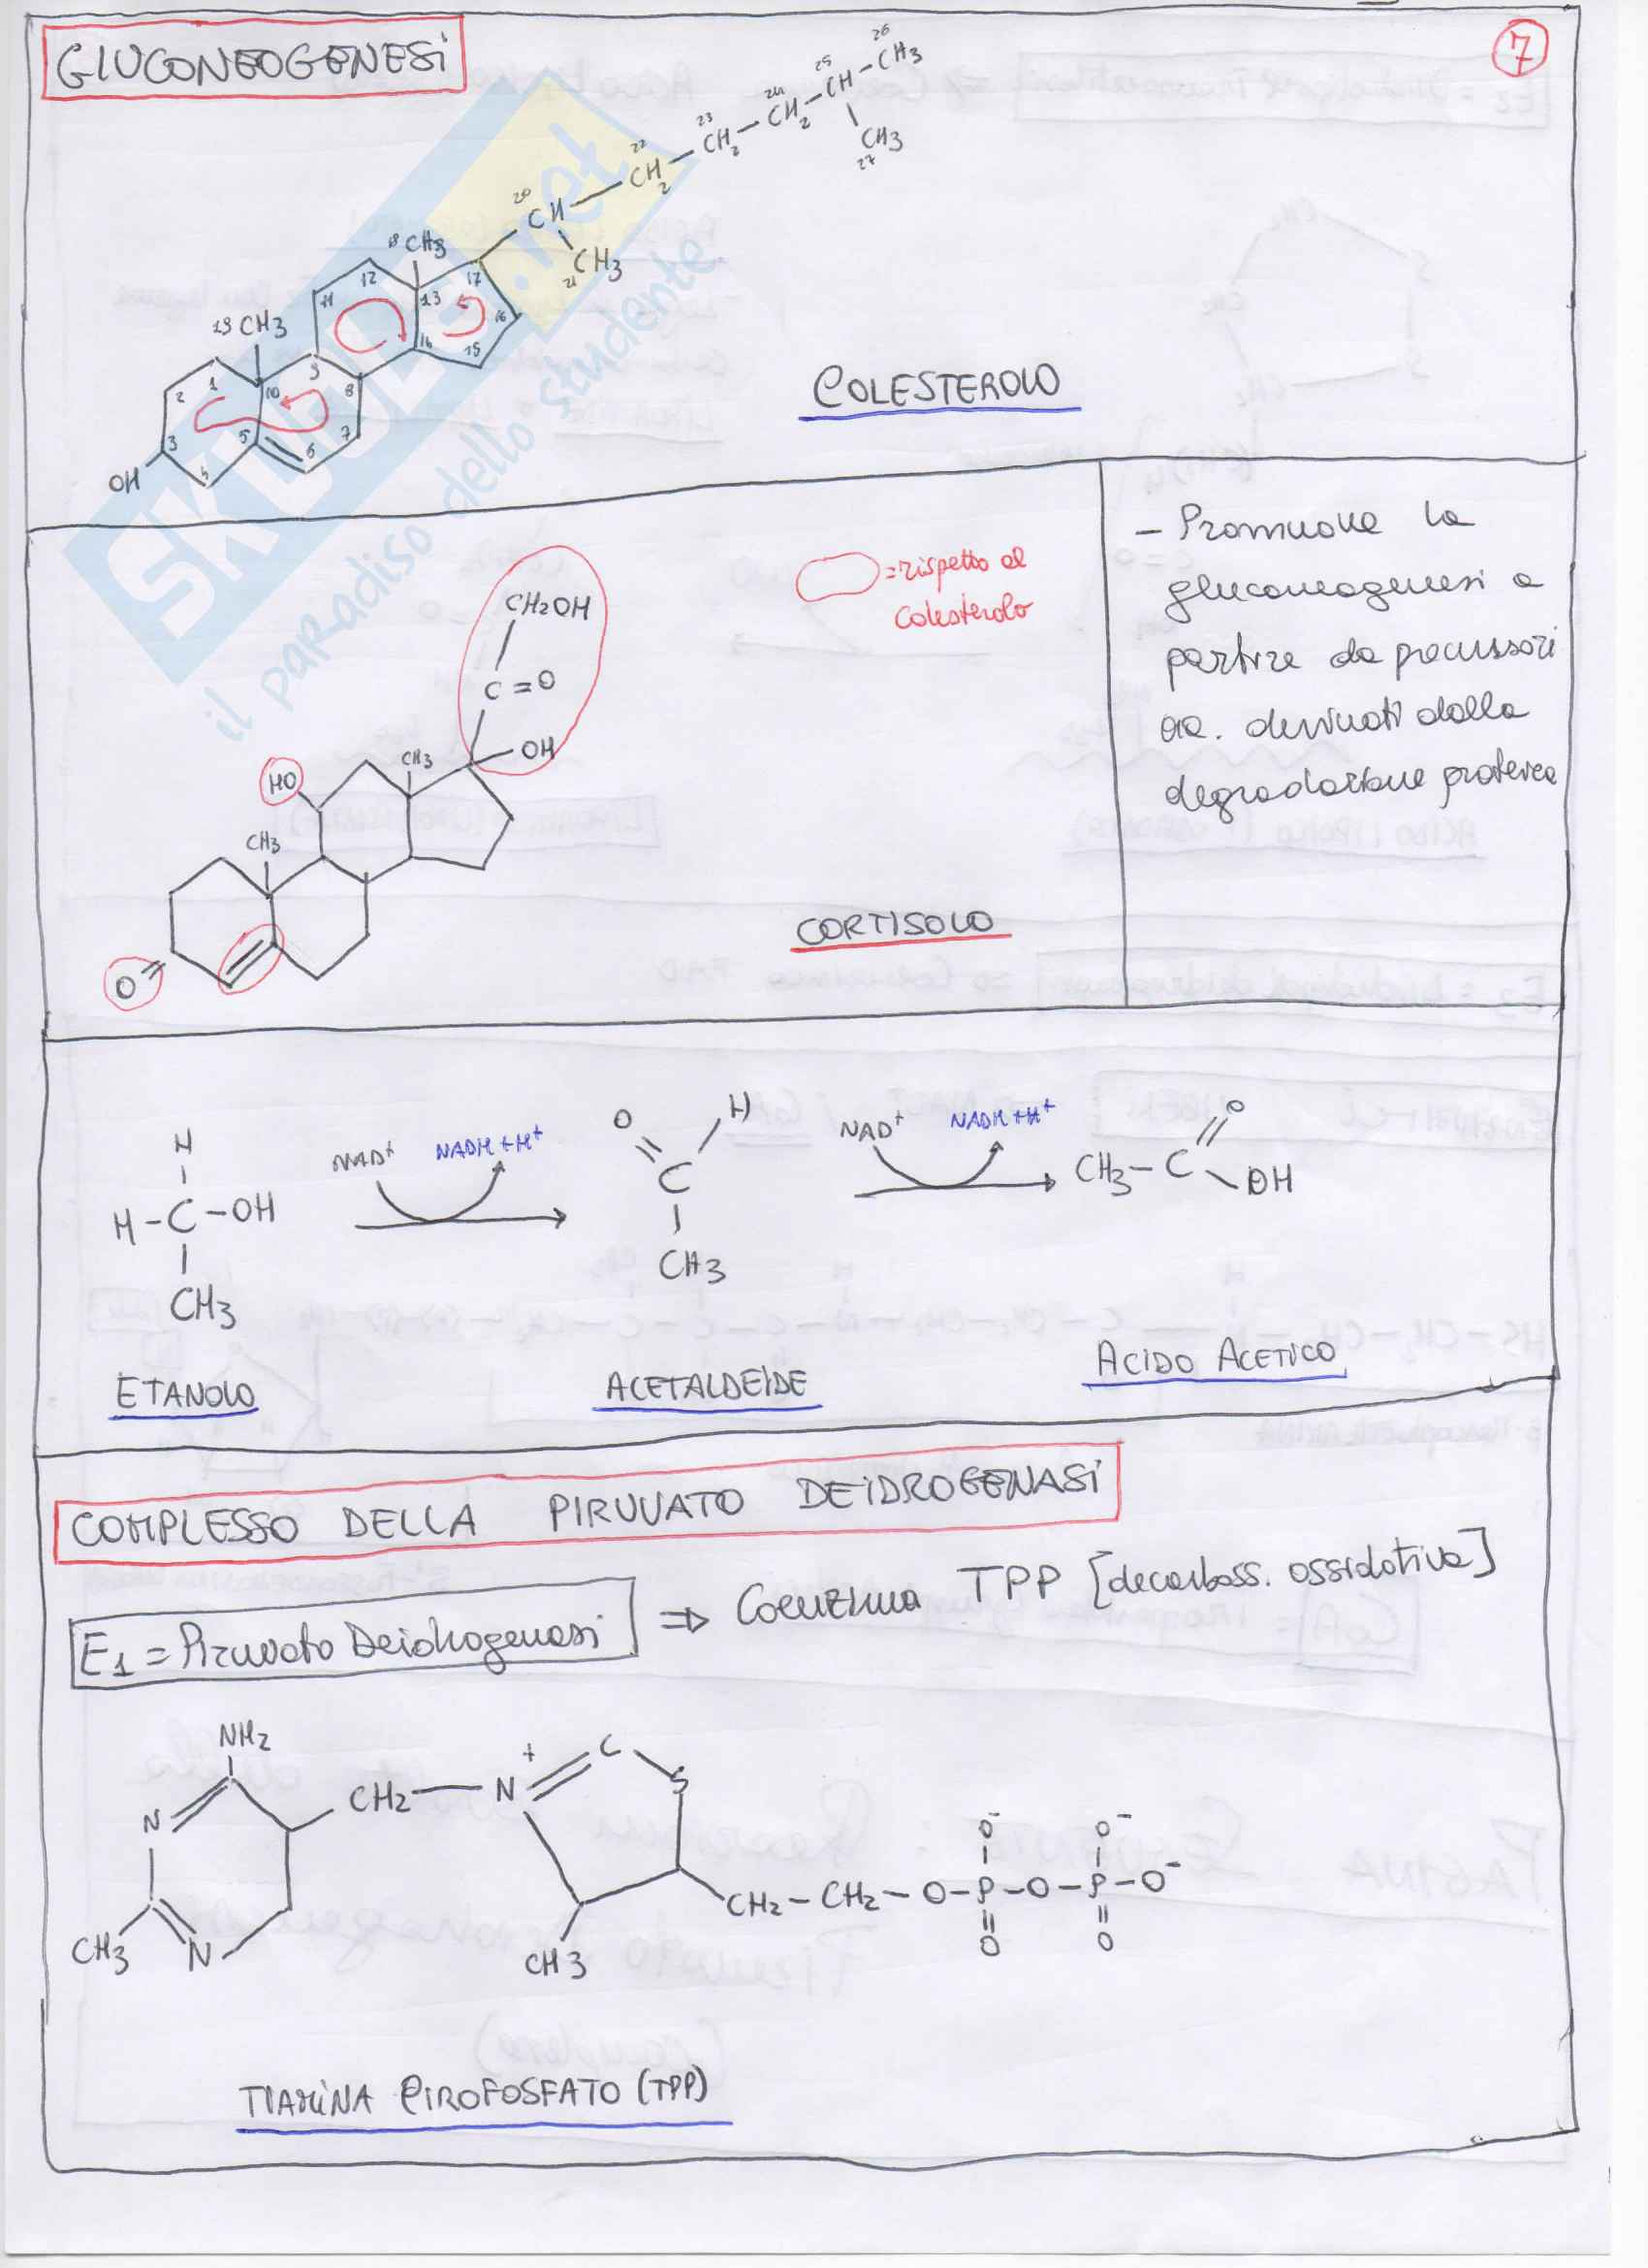 GLUCONEOGENESI
7
26
25 CH3
24 CH
23 CH2 CH3
22 CH2 27
20 CH2
CH
18 CH3
21 CH3
12 17
11 13
19 CH3 16
14 15
9
1
2 10 8
3 5 7
6
4
OH
COLESTEROLO
SKUOLA.net
il paradiso dello studente
= rispetto al
Colesterolo
CH2OH
C=O
OH
CH3
HO
CH3
O
CORTISOLO
- Promuove la
gluconeogenesi a
partire da precussori
aa. derivati dalla
degradazione proteica
H
H-C-OH
CH3
ETANOLO
NAD+ NADH+H+
O H
C
CH3
ACETALDEIDE
NAD+ NADH+H+
O
CH3-C
OH
ACIDO ACETICO
COMPLESSO DELLA PIRUVATO DEIDROGENASI
E1 = Piruvato Deidrogenasi ⇒ Coenzima TPP [decarboss. ossidativa]
NH2
N CH2 N+ C S
O- O-
CH2-CH2-O-P-O-P-O-
CH3 N CH3 O O
TIAMINA PIROFOSFATO (TPP)